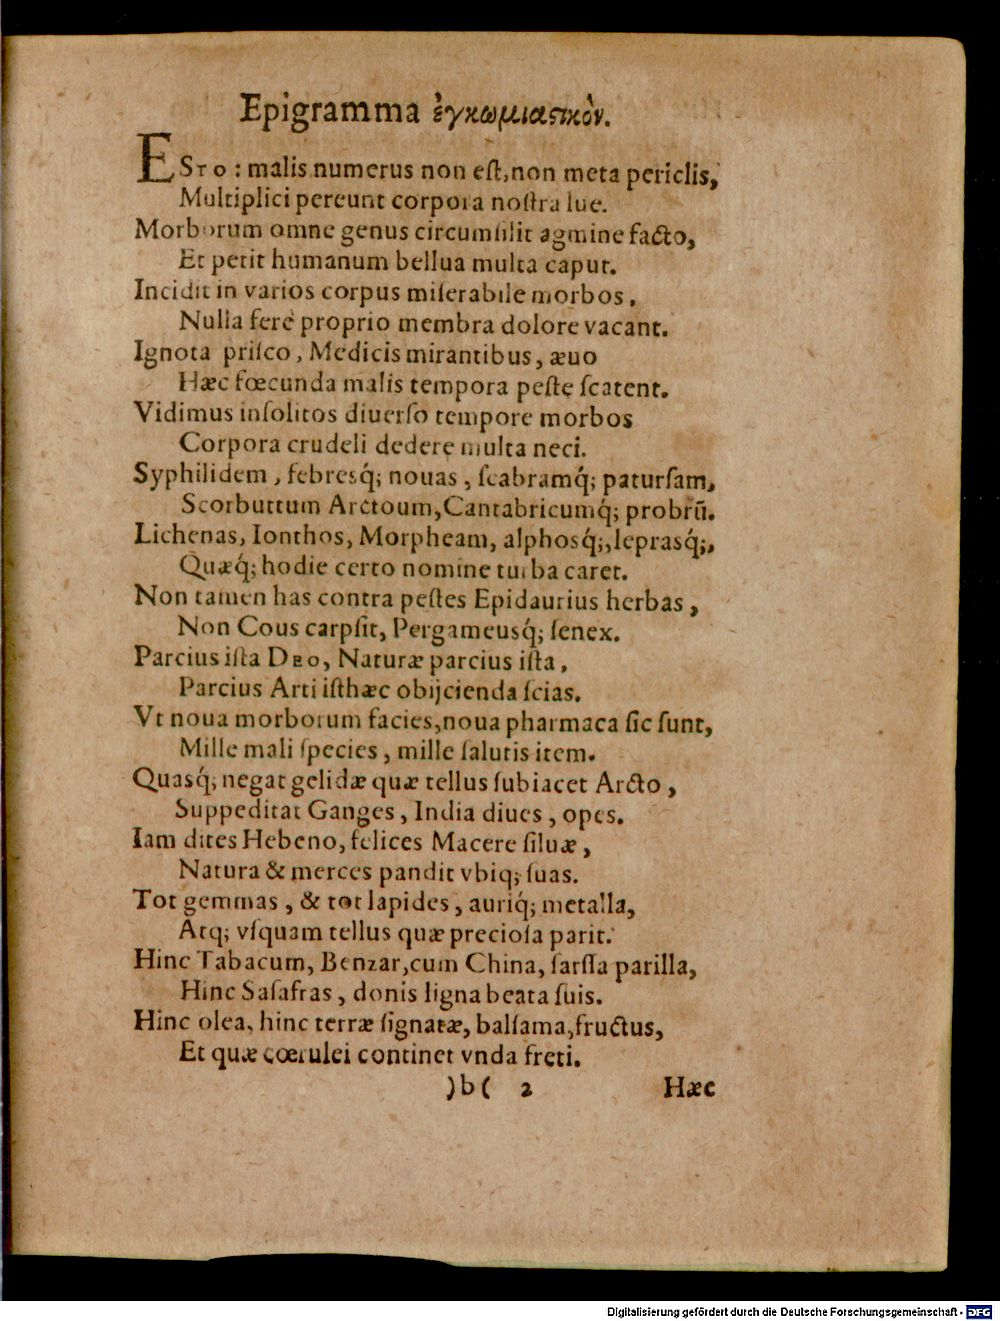 Epigramma ἐγκωμιαστικὸν.
ESTO : malis numerus non eſt, non meta periclis,
Multiplici pereunt corpora noſtra lue.
Morborum omne genus circumſilit agmine facto,
Et petit humanum bellua multa caput.
Incidit in varios corpus miſerabile morbos,
Nulla ferè proprio membra dolore vacant.
Ignota priſco, Medicis mirantibus, æuo
Hæc fœcunda malis tempora peſte ſcatent.
Vidimus inſolitos diuerſo tempore morbos
Corpora crudeli dedere multa neci.
Syphilidem, febresq́; nouas, ſcabramq́; paturſam,
Scorbuttum Arctoum, Cantabricumq́; probrũ.
Lichenas, Ionthos, Morpheam, alphosq́;, leprasq́;,
Quæq́; hodie certo nomine turba caret.
Non tamen has contra peſtes Epidaurius herbas,
Non Cous carpſit, Pergameusq́; ſenex.
Parcius iſta DEO, Naturæ parcius iſta,
Parcius Arti iſthæc obijcienda ſcias.
Vt noua morborum facies, noua pharmaca ſic ſunt,
Mille mali ſpecies, mille ſalutis item.
Quasq́; negat gelidæ quæ tellus ſubiacet Arcto,
Suppeditat Ganges, India diues, opes.
Iam dites Hebeno, felices Macere ſiluæ,
Natura & merces pandit vbiq; ſuas.
Tot gemmas, & tot lapides, auriq́; metalla,
Atq; vſquam tellus quæ precioſa parit.
Hinc Tabacum, Benzar, cum China, ſarſſa parilla,
Hinc Saſafras, donis ligna beata ſuis.
Hinc olea, hinc terræ ſignatæ, balſama, fructus,
Et quæ cœrulei continet vnda freti.
)b( 2 Hæc
Digitalisierung gefördert durch die Deutsche Forschungsgemeinschaft - DFG